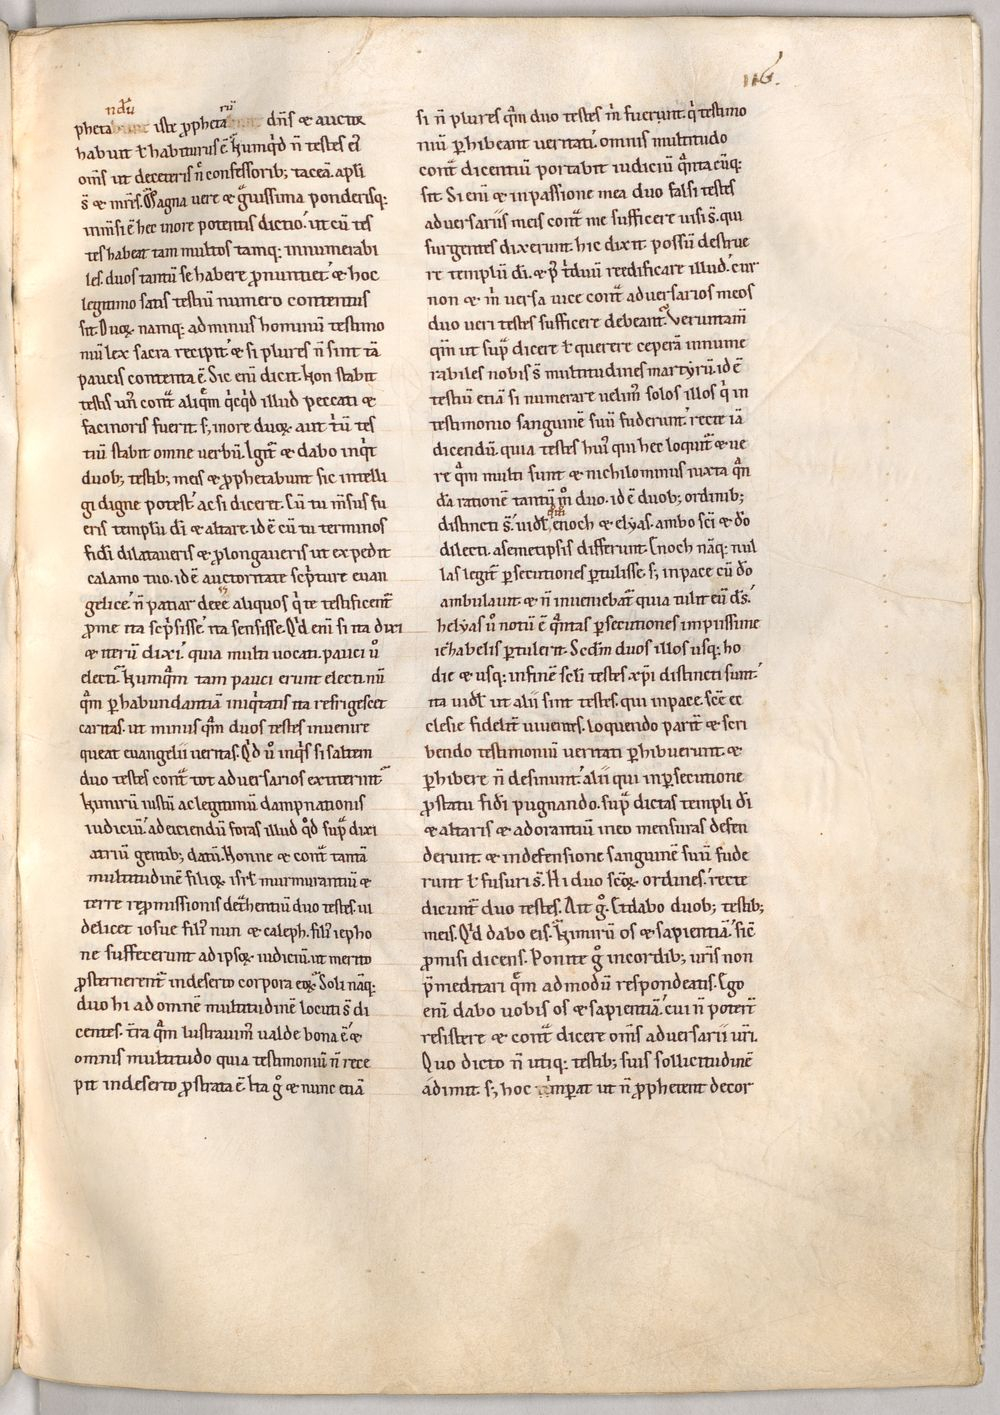 116.
ndū rū
pheta iste ꝓpheta dn̄s & auctor
habuit ł habiturus ē. Numqͥd n̄ testes ei
om̄s ut de ceteris n̄c confessorib; taceā. apłi
s̄ & mr̄s. Magna uere & gͣuissima ponderisq;
inm̄si ē hec more potentis dictio. ut cū tes
tes habeat tam multos tamq; innumerabi
les. duos tantū se habere ꝓnuntiet. & hoc
legitimo satis testiū numero contentus
sit. Duoꝝ namq; ad minus hominū testimo
niū lex sacra recipit. & si plures n̄ sint tā
paucis contenta ē. Sic eni dicit. Non stabit
testis un̄ cont̄ aliq̄m qͥcqͥd illud peccati &
facinoris fuerit s; in ore duoꝝ aut tͥū tes
tiū stabit omne uerbū. Igit̄ & dabo inqͥt
duob; testib; meis & ꝓphetabunt sic intelli
gi digne potest. ac si diceret. Cū tu m̄sus fu
eris templū dī & altare. id ē cū tu terminos
fidī dilataueris & ꝓlongaueris ut expedit
calamo tuo. id ē auctoritate scͥpture euan
gelice. n̄ patiar deeē aliquos qͥ te testificent̄
ꝓ me ita scͥpsisse. ita sensisse. Qͥd eni si ita dixi
& iterū dixi. quia multi uocati. pauci ū
electi. Numqͣm tam pauci erunt electi. nū
qͣm ꝑ habundantiā iniqͥtatis ita refrigescet
caritas. ut minus qͣm duos testes inuenire
queat euangelii ueritas. Qͥd ū inqͥs si saltem
duo testes cont̄ tot aduersarios extiterint.
Nimirū iustū ac legitimū dampnationis
iudiciū. ad eiciendū foras illud qͦd supͣ dixi
atriū gentib; datū. Nonne & cont̄ tantā
multitudinē filioꝝ isrł murmurantiū &
terre repromissionis det̄hentiū duo testes. ui
delicet iosue fili nun & caleph. fili iepho
ne suffecerunt ad ipsoꝝ iudiciū. ut merito
ꝓsternerent̄ in deserto corpora eoꝝ. Soli nāq;
duo hi ad omnē multitudinē locuti s̄ di
centes. t̄ra qͣm lustrauim̄ ualde bona ē. &
omnis multitudo quia testimoniū n̄ rece
pit in deserto ꝓstrata ē. Ita gͦ & nunc etiā
si n̄ plures qͣm duo testes m̄ fuerunt. qͥ testimo
niū ꝑhibeant ueritati. omnis multitudo
cont̄ dicentiū portabit iudiciū qͣntacūq;
sit. Si eni & in passione mea duo falsi testes
aduersariis meis cont̄ me sufficere uisi s̄. qui
surgentes dixerunt. hic dixit possū destrue
re templū dī. & pͦ tͥduū reedificare illud. cur
non & m̄ uersa uice cont̄ aduersarios meos
duo ueri testes sufficere debeant. Verūtam̄
qͣm ut supͣ dicere ł querere ceperā innume
rabiles nobis s̄ multitudines martyrū. id ē
testiū etiā si numerare uelim̄ solos illos qͥ in
testimonio sanguinē suū fuderunt. recte iā
dicendū. quia testes hui qui hec loquit̄ & ue
re qͣm multi sunt & nichilominus iuxta qͣn
dā rationē tantūmͦ duo. id ē duob; ordinib;
distincti s̄. uidł enoch & elyas. ambo scī & dō
dilecti. a semetipsis differunt. Enoch nāq; nul
las legit̄ ꝑsecutiones ꝑtulisse. s; in pace cū dō
ambulauit. & n̄ inueniebat̄ quia tulit eū ds̄.
helyas ū notū ē qͣntas ꝑsecutiones impiissime
iezabelis ꝑtulerit. Scdm duos illos usq; ho
die & usq; in finē scłi testes xp̄i distincti sunt.
ita uidł ut alii sint testes. qui in pace scē ec
clesie fidelit̄ uiuentes. loquendo parit̄ & scri
bendo testimoniū ueritati ꝑhibuerunt. &
ꝑhibere n̄ desinunt. alii qui in ꝑsecutione
ꝓ statu fidī pugnando. supͣ dictas templi dī
& altaris & adorantiū in eo mensuras defen
derunt. & in defensione sanguinē suū fude
runt ł fusuri s̄. Hi duo scōꝝ ordines. recte
dicunt̄ duo testes. Ait gͦ. Et dabo duob; testib;
meis. Qͥd dabo eis. Nimirū os & sapientiā. sic̄
ꝓmisi dicens. Ponite gͦ in cordib; ur̄is non
p̄meditari qͣm admodū respondeatis. Ego
eni dabo uobis os & sapientiā. cui n̄ poter̄t
resistere & cont̄ dicere om̄s aduersarii ur̄i.
Quo dicto n̄ utiq; testib; suis sollicitudinē
adimit. s; hoc imꝑat ut n̄ ꝓphetent decor